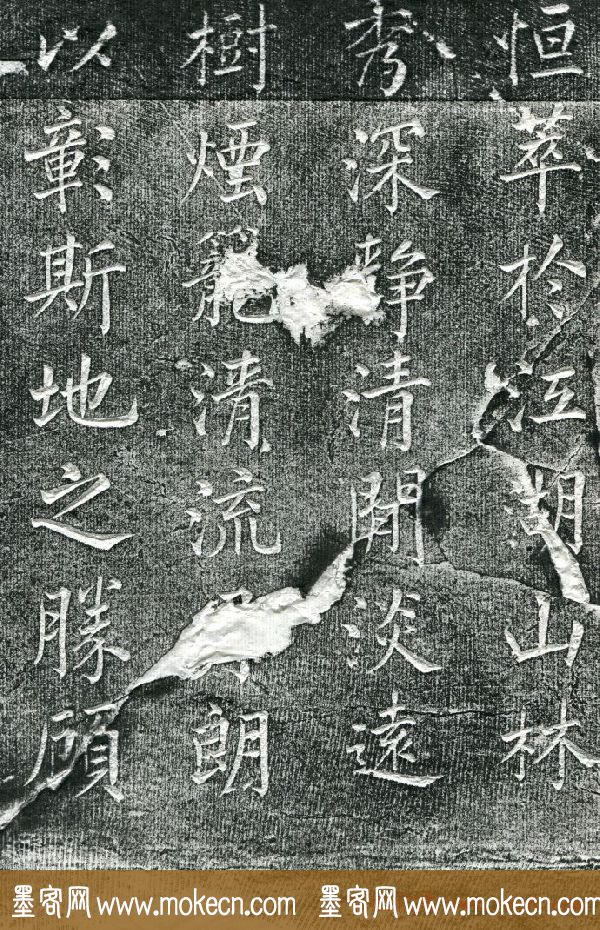 恒萃於江湖山林
秀深静清閒淡遠
樹煙籠清流 朗
以彰斯地之勝顧
墨客网 www.mokecn.com 墨客网 www.mokecn.com